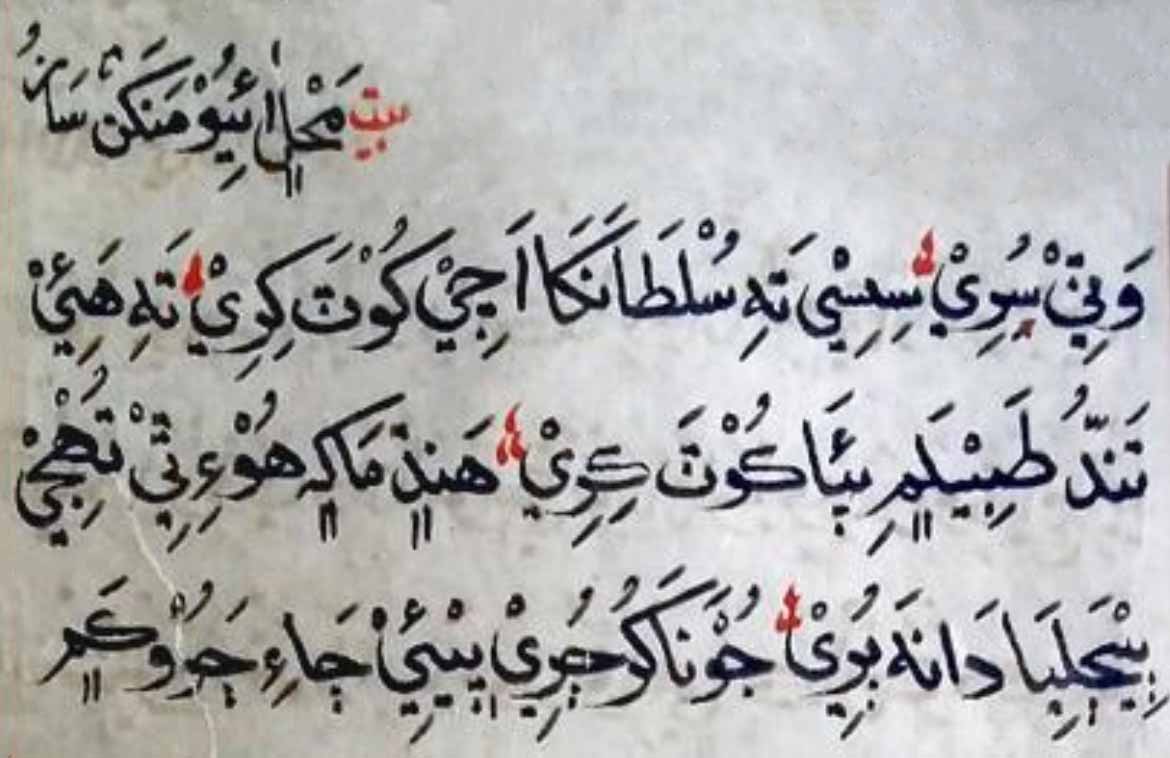 بيت مَحْلِ آئِيُوْ مَنكَنْ سَازُ
وَيِيْ سُوِيْ سِسِيْ تَهِ سُلْطَانَكَا اَجِيْ كُوْتَ كِرِيْ تَهِ هَيِئَيْ
تَندُّ طَبِيْلَمِ پِئَا كُوْتَ كِرِيْ هَنڌِ مَاكِہ هُوْءِ تِيْ تُهِجِيْ
بِيْجَلِيَا دَانَه بُوِيْ جُوْنَاكُو جُوِيْ پِيْئِيْ جَاءِ جَوْ كَمِ